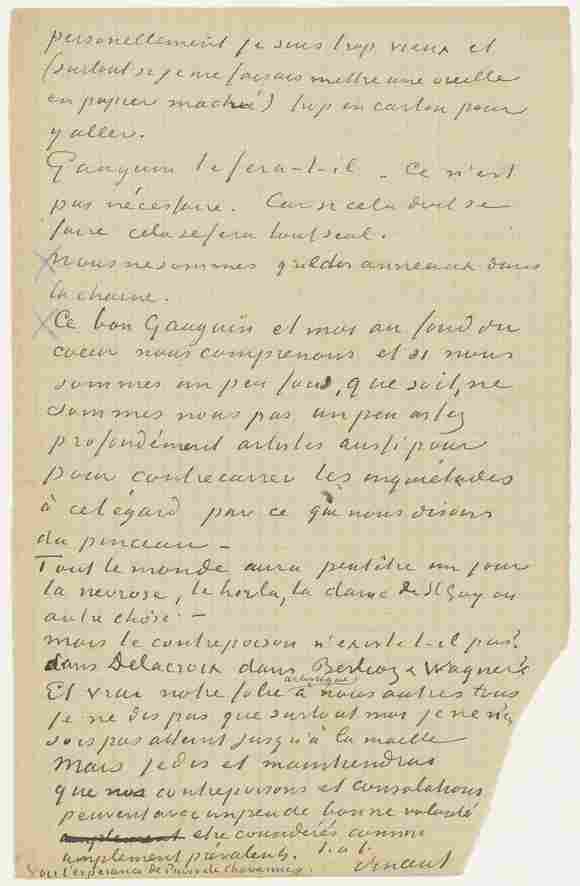 personellement je suis trop vieux et
(surtout si je me faisais mettre une oreille
en papier maché) trop en carton pour
y aller.
Gauguin le fera-t-il – Ce n'est
pas nécessaire. Car si cela doit se
faire cela se fera tout seul.
Nous ne sommes que des anneaux dans
la chaine.
Ce bon Gauguin et moi au fond du
coeur nous comprenons et si nous
sommes un peu fous, que soit, ne
sommes nous pas un peu assez
profondément artistes aussi pour
pour contrecarrer les inquiétudes
à cet égard par ce que nous disons
du pinceau –
Tout le monde aura peutêtre un jour
la nevrose, le horla, la danse de St Guy ou
autre chose. –
mais le contrepoison n'existe-t-il pas?
dans Delacroix dans Berlioz & Wagner?
Et vrai notre folie artistique à nous autres tous
je ne dis pas que surtout moi je ne n'en
sois pas atteint jusqu'à la moelle
Mais je dis et maintiendrai
que nos contrepoisons et consolations
peuvent avec un peu de bonne volonté
amplement etre considérés comme
amplement prévalents. t. à t.
Vincent
voir l'espérance de Puvis de Chavannes.